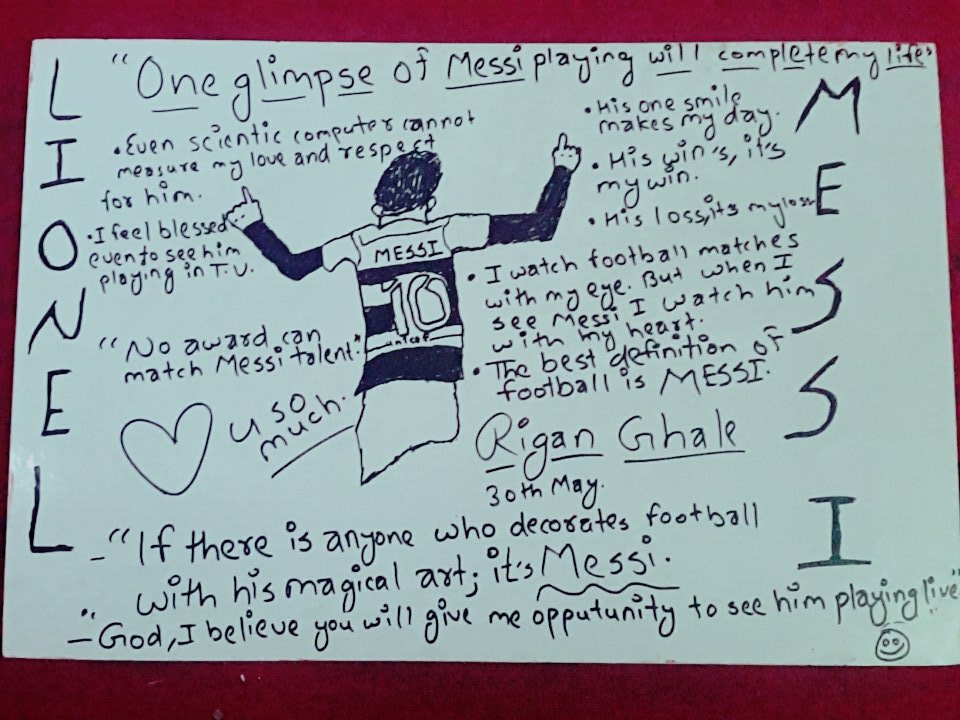 "One glimpse of Messi playing will complete my life"
LIONEL
MESSI
• Even scientic computer cannot
measure my love and respect
for him.
• I feel blessed
even to see him
playing in T.V.
"No award can
match Messi talent."
U SO
much.
MESSI
10
unicef
• His one smile
makes my day.
• His win's, it's
my win.
• His loss, its my loss
• I watch football matches
with my eye. But when I
see Messi I watch him
with my heart.
• The best definition of
football is MESSI.
Rigan Ghale
30th May.
– "If there is anyone who decorates football
with his magical art; it's Messi.
"
– God, I believe you will give me opputunity to see him playing live"